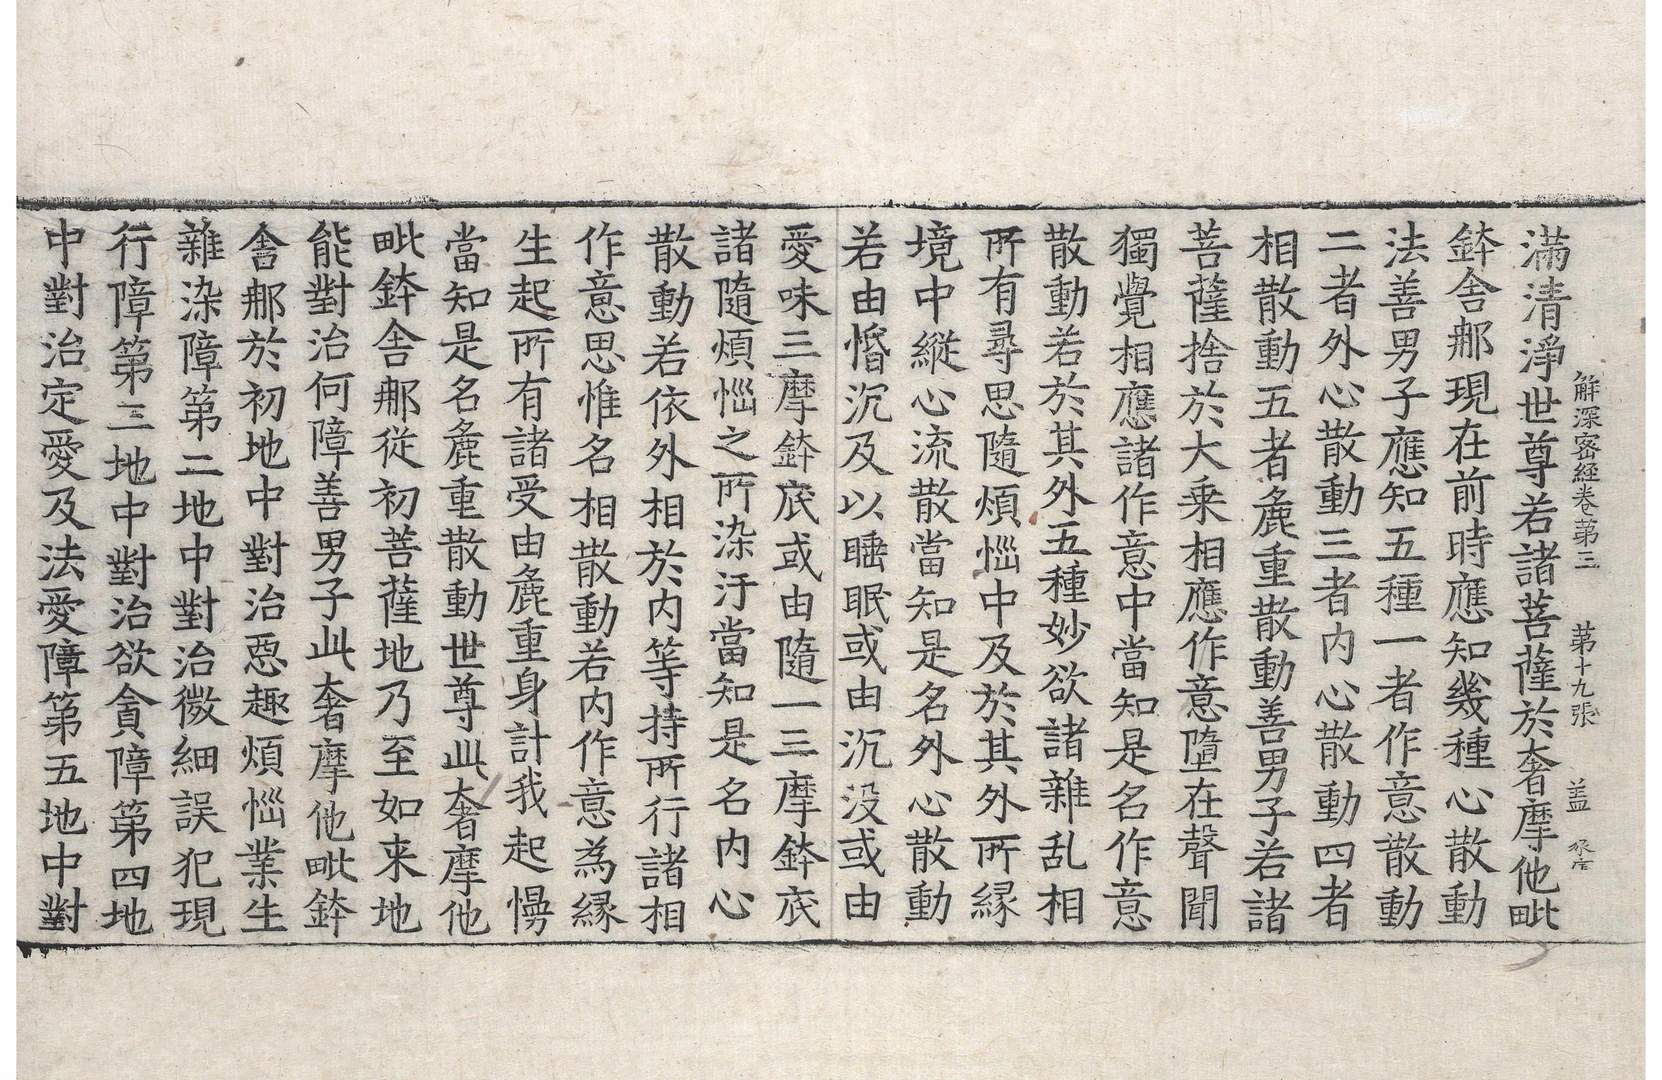 解深密經卷第三 第十九張 盖
滿清淨世尊若諸菩薩於奢摩他毗
鉢舍那現在前時應知幾種心散動
法善男子應知五種一者作意散動
二者外心散動三者内心散動四者
相散動五者麁重散動善男子若諸
菩薩捨於大乗相應作意墮在聲聞
獨覺相應諸作意中當知是名作意
散動若於其外五種妙欲諸雜乱相
所有尋思隨煩惱中及於其外所縁
境中縱心流散當知是名外心散動
若由惛沉及以睡眠或由沉没或由
愛味三摩鉢底或由隨一三摩鉢底
諸隨煩惱之所染汙當知是名内心
散動若依外相於内等持所行諸相
作意思惟名相散動若内作意為縁
生起所有諸受由麁重身計我起慢
當知是名麁重散動世尊此奢摩他
毗鉢舍那従初菩薩地乃至如来地
能對治何障善男子此奢摩他毗鉢
舍那於初地中對治惡趣煩惱業生
雜染障第二地中對治微細誤犯現
行障第三地中對治欲貪障第四地
中對治定愛及法愛障第五地中對